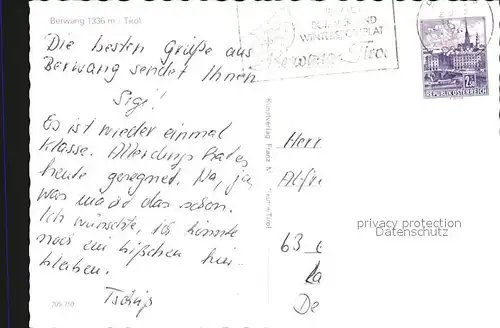 Berwang 1336 m / Tirol
Die besten Grüße aus
Berwang sendet Ihnen
Sigi!
Es ist wieder einmal
Klasse. Allerdings hat es
heute geregnet. Na, ja,
was macht das schon.
Ich wünschte, ich könnte
noch ein bißchen hier
bleiben.
Tschüß
Kunstverlag Franz
Tirol
UND
WINTER
Berwang-Tirol
2.50
REPUBLIK ÖSTERREICH
Herr
Alfr
63
De
privacy protection
Datenschutz